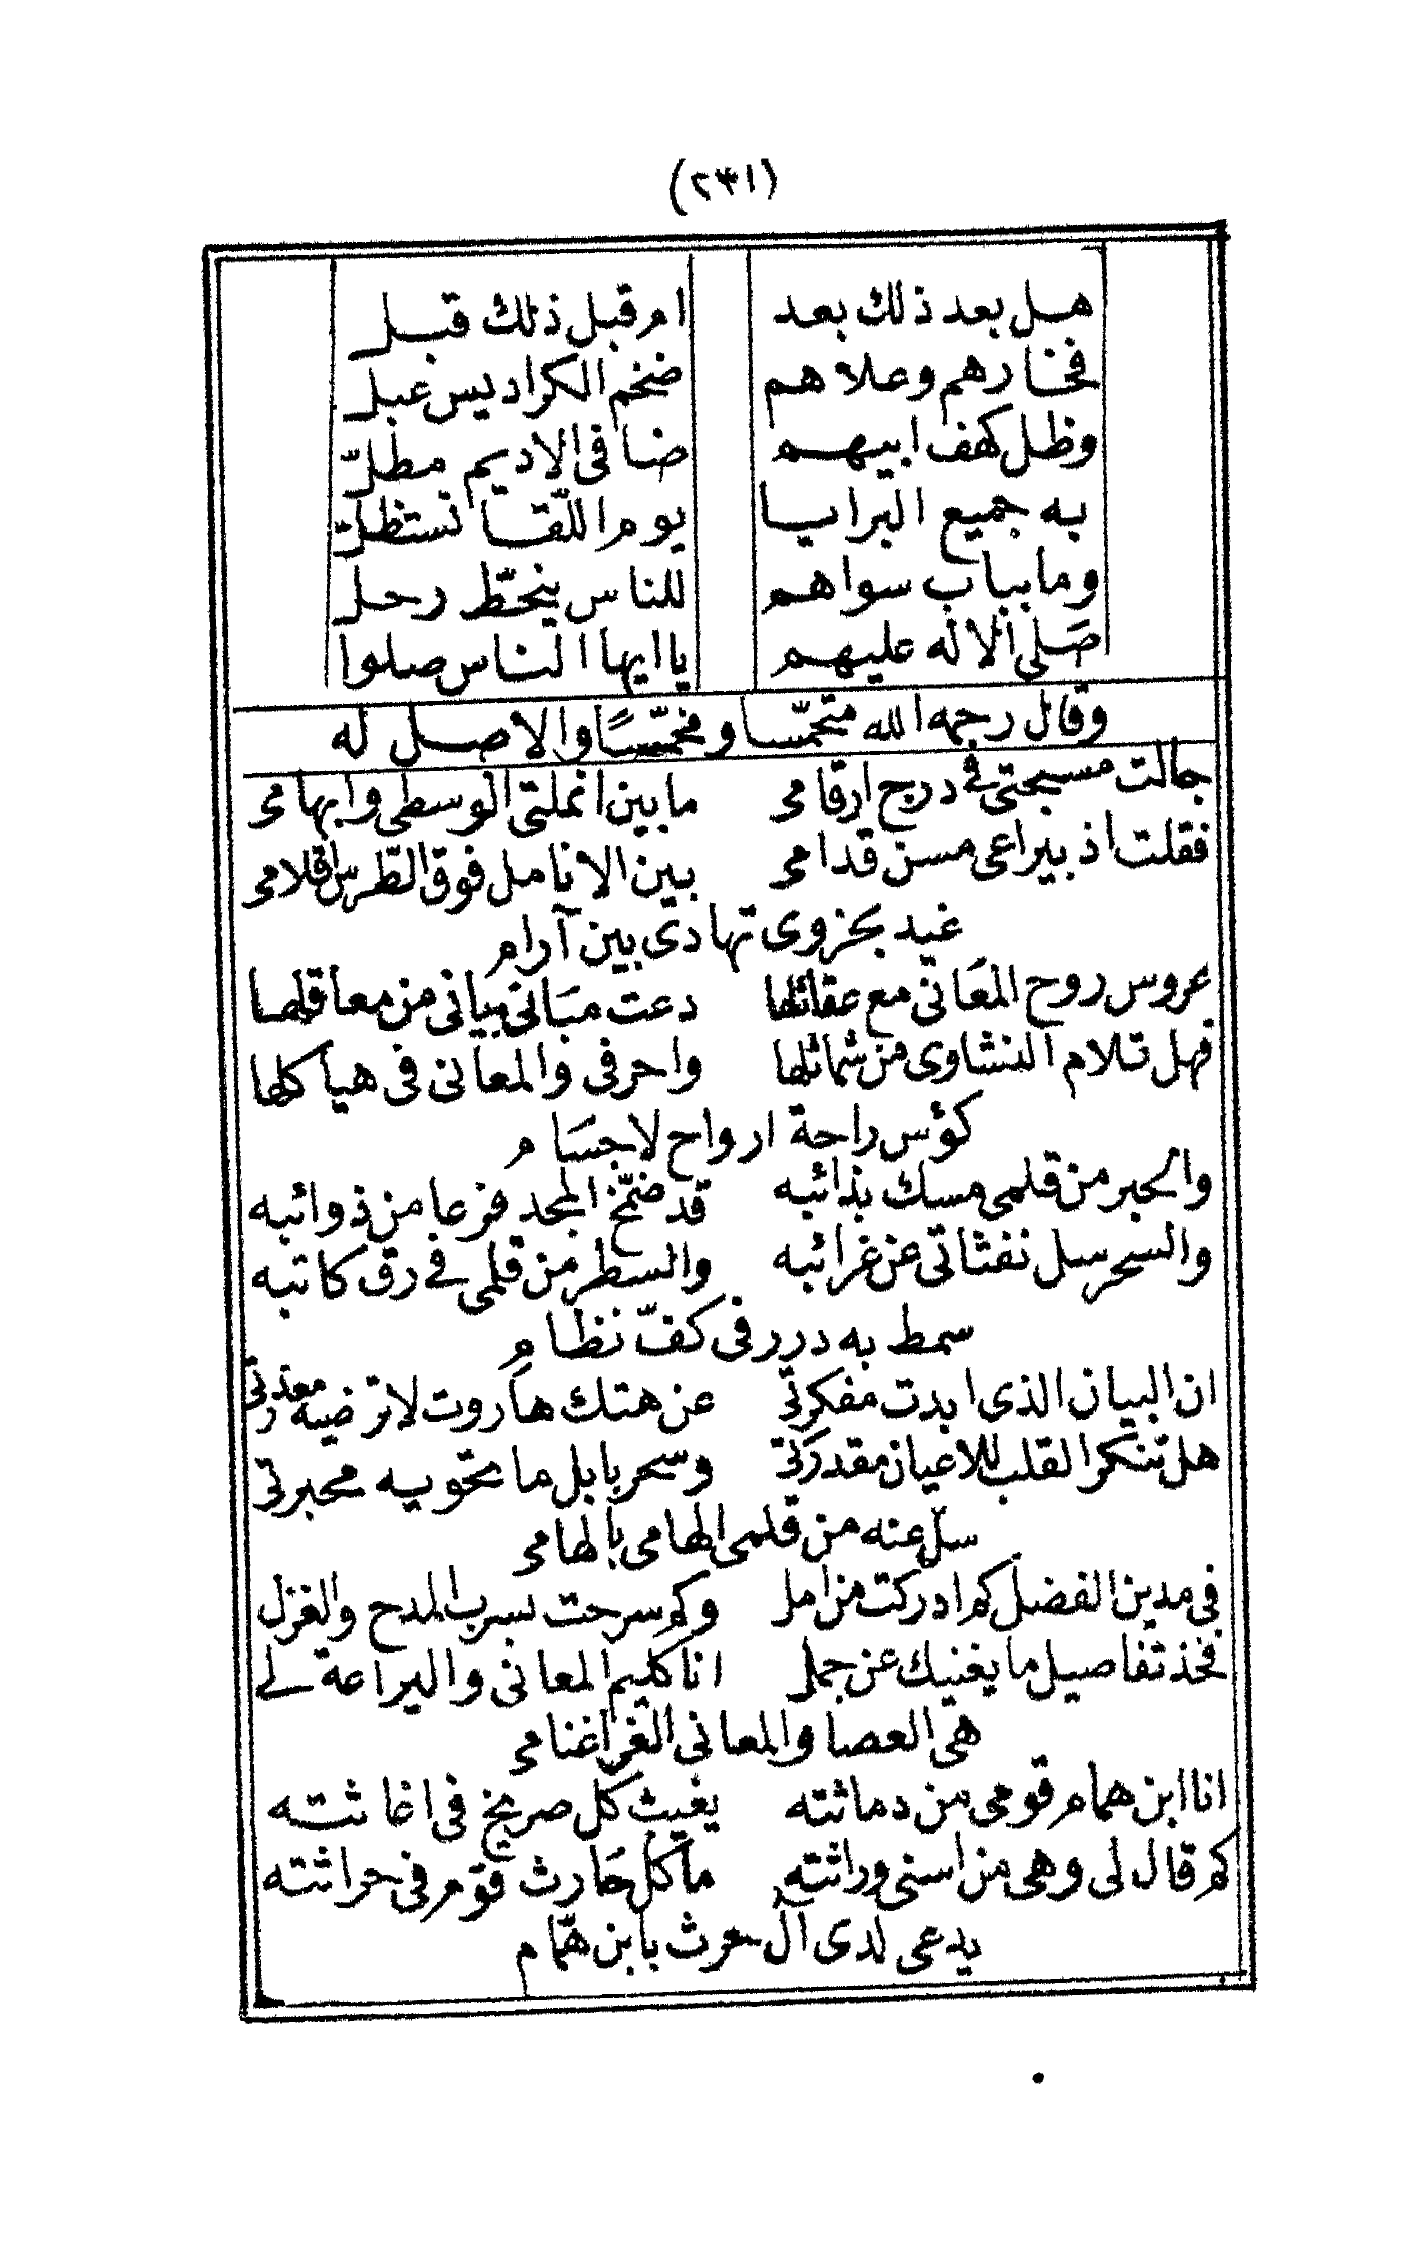 هل بعد ذلك بعد ام قبل ذلك قبل
فخارهم وعلاهم ضخم الكراديس عبل
وظل كهف ابيهم ضافى الاديم مطلّ
به جميع البرايا يوم اللّقا نستظلّ
وما بباب سواهم للناس ينحطّ رحل
صَلى الاله عليهم يا ايها الناس صلوا
وقال رحمه الله متحمّسا ومخمّسًا والاصل له
جالت مسبحتى فى درج ارقامى ما بين انملتى الوسطى وابهامى
فقلت اذ بيراعى مسن قدامى بين الانامل فوق الطّرس اقلامى
غيد بحزوى تهادى بين آرام
عروس روح المعَانى مع عقائلها دعت مبَانى بيانى من معاقلها
فهل تلام النشاوى من شمائلها واحرفى والمعانى فى هياكلها
كؤس راحة ارواح لاجسَام
والحبر من قلمى مسك بذائبه قد ضمّخ المجد فرعا من ذوائبه
والسحر سل نفثاتى عن غرائبه والسطر من قلمى فى رق كاتبه
سمط به درر فى كفّ نظام
ان البيان الذى ابدت مفكرتى عن هتك هاروت لا ترضيه معذرتى
هل تنكر القلب للاعيان مقدرتى وسحر بابل ما تحويه محبرتى
سلّ عنه من قلمى الهامى بالهامى
فى مدين الفضل كم ادركت من امل وكم سرحت بسرب المدح والغزل
فخذ تفاصيل ما يغنيك عن جمل انا كليم المعانى واليراعة لى
هى العصا والمعانى الغر اغنامى
انا ابن همام قومى من دماثته يغيث كل صريخ فى اغاثته
كم قال لى وهى من اسنى وراثته ما كل حَارث قوم فى حراثته
يدعى لدى آل حرث بابن همّام